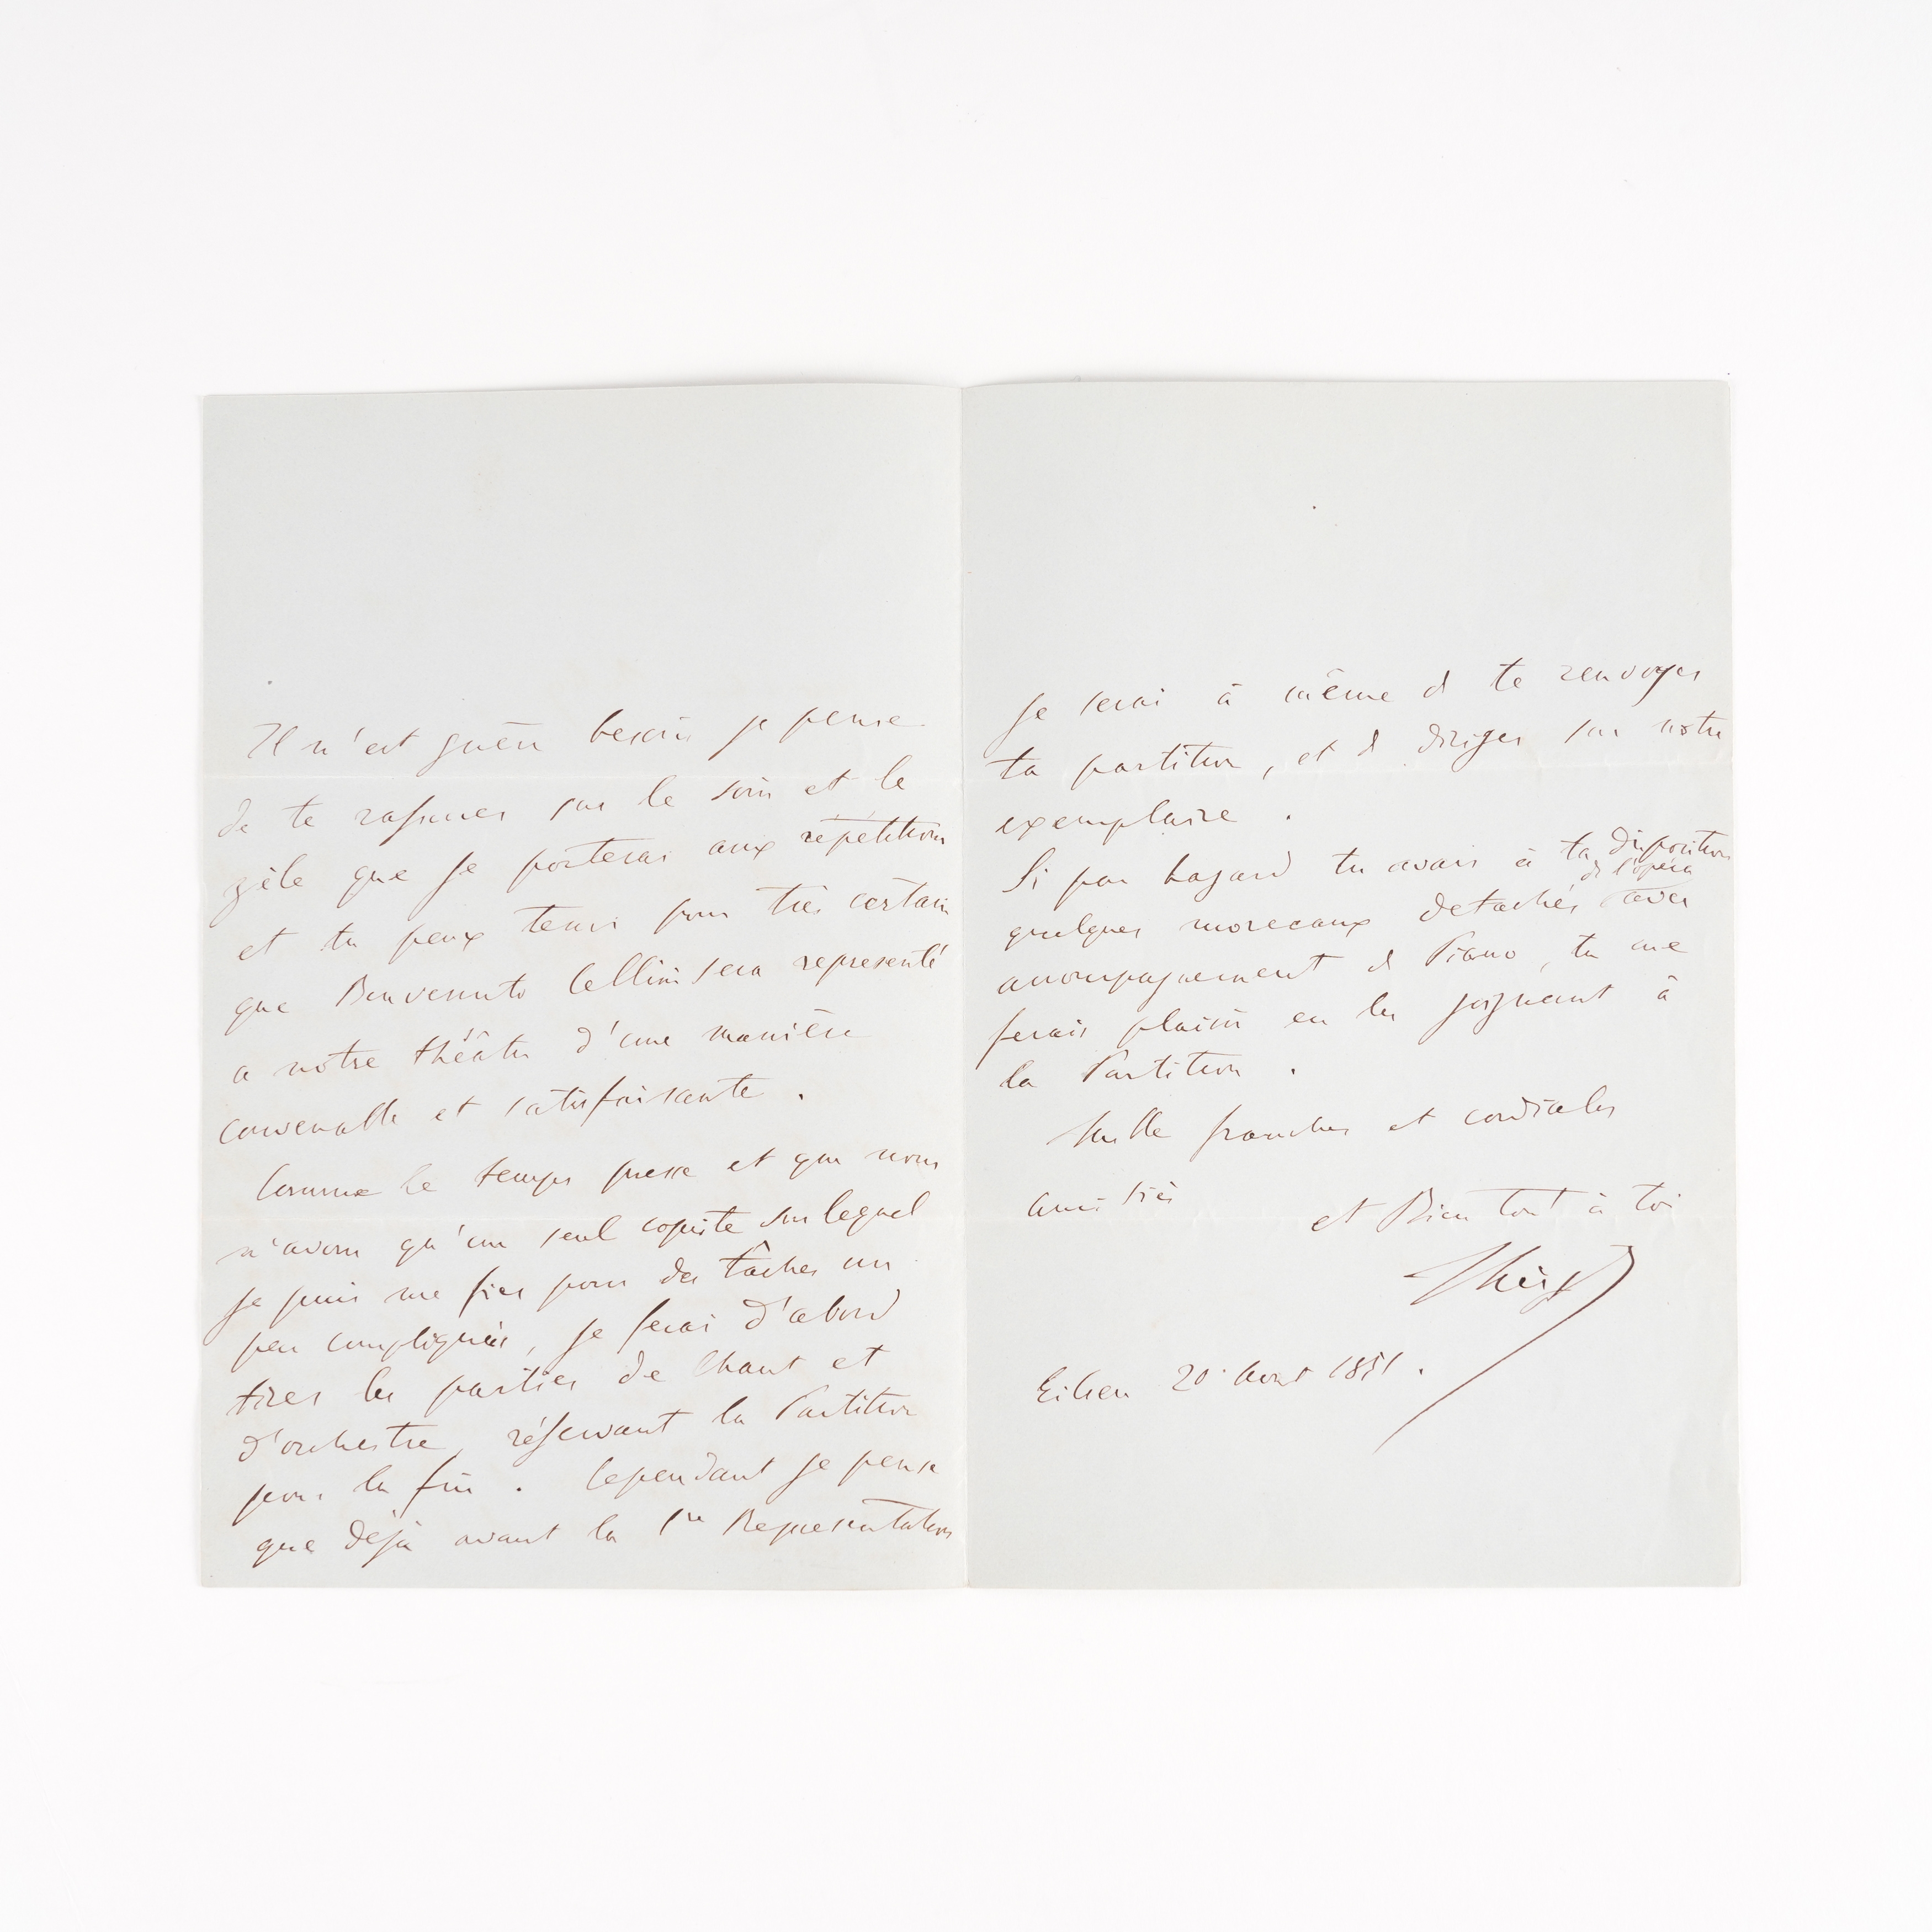 Il n'est guère besoin je pense
de te rassurer sur le soin et le
zèle que je porterai aux répétitions
et tu peux tenir pour très certain
que Benvenuto Cellini sera representé
a notre théâtre d'une manière
convenable et satisfaisante.
Comme le temps presse et que nous
n'avons qu'un seul copiste sur lequel
je puis me fier pour des tâches un
peu compliquées, je ferai d'abord
tirer les parties de Chant et
d'orchestre, réservant la Partition
pour la fin. Cependant je pense
que déjà avant la 1re Representation
je serai à même de te renvoyer
ta partition, et de diriger sur notre
exemplaire.
Si par hazard tu avais à ta disposition
de l'opéra
quelques morceaux detachés avec
accompagnement de Piano, tu me
ferais plaisir en les joignant à
la Partition.
Mille franches et cordiales
amitiés
et Bien tout à toi
FLiszt
Eilsen 20 Aout 1851.